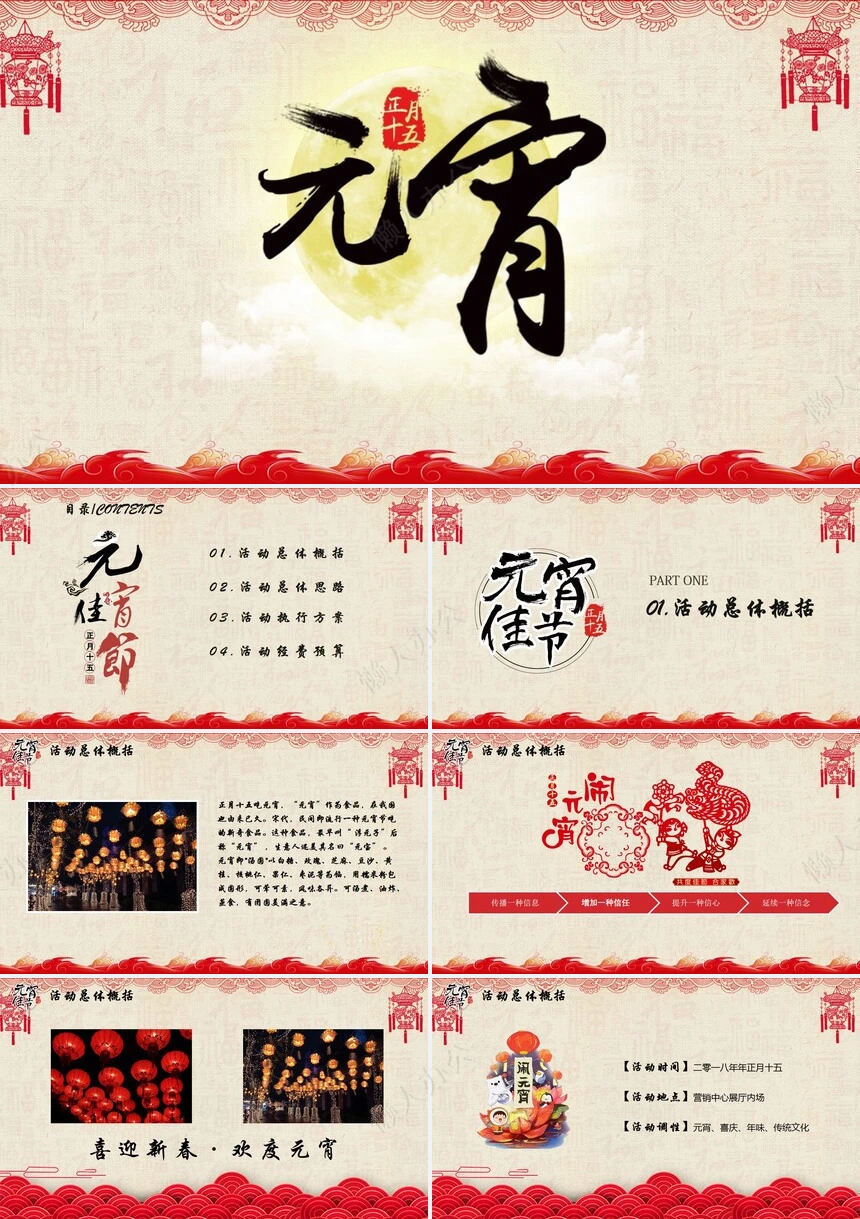 元宵
正月
十五
目录/CONTENTS
元
宵
佳
節
正月十五
01.活动总体概括
02.活动总体思路
03.活动执行方案
04.活动经费预算
元宵
佳节
正月
十五
PART ONE
01.活动总体概括
元宵
佳节
活动总体概括
正月十五吃元宵，“元宵”作为食品，在我国
也由来已久。宋代，民间即流行一种元宵节吃
的新奇食品。这种食品，最早叫“浮元子”后
称“元宵”，生意人还美其名曰“元宝”。
元宵即“汤圆”以白糖、玫瑰、芝麻、豆沙、黄
桂、核桃仁、果仁、枣泥等为馅，用糯米粉包
成圆形，可荤可素，风味各异。可汤煮、油炸、
蒸食，有团圆美满之意。
元宵
佳节
活动总体概括
正月十五
闹
元
宵
共度佳节 合家歡
传播一种信息
增加一种信任
提升一种信心
延续一种信念
元宵
佳节
活动总体概括
喜迎新春·欢度元宵
元宵
佳节
活动总体概括
闹元宵
【活动时间】二零一八年年正月十五
【活动地点】营销中心展厅内场
【活动调性】元宵、喜庆、年味、传统文化
懒人办公